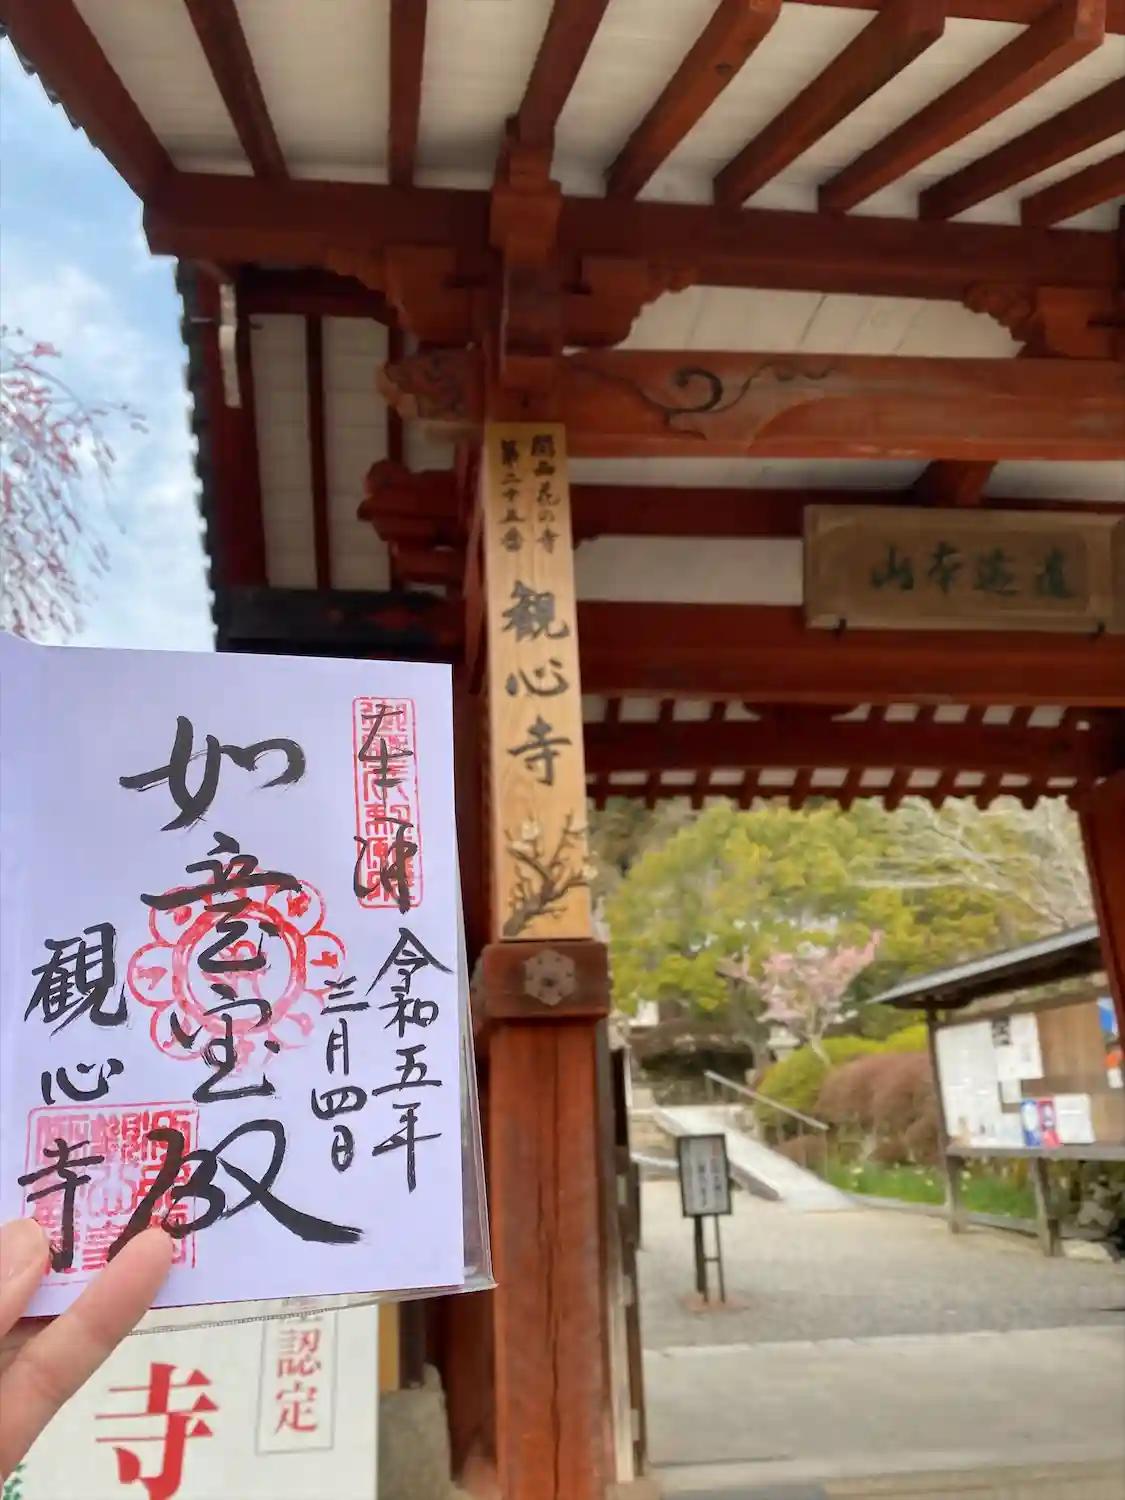 関西花の寺
第二十五番
観心寺
遺迹本山
奉拝
令和五年
三月四日
如意宝殿
観心寺
認定
寺